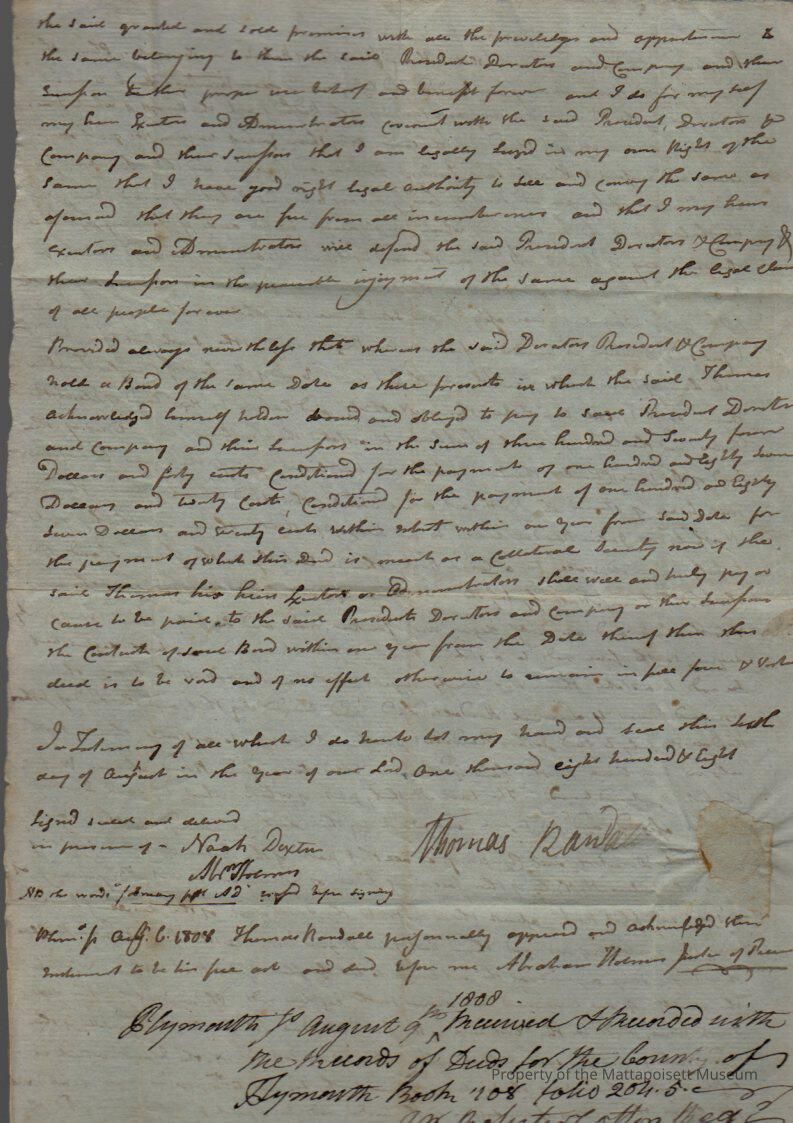 the said granted and sold premises with all the priviledges and appurtenances &
the same belonging to them the said President Derectors and Company and their
Sucessors to their proper use behoof and benefit forever and I do for my self
my heirs Exetors and Administrators covenant with the said President, Derectors &
Company and their Sucessors that I am legally Seizd in my own Right of the
same that I have good right legal authority to sell and convey the same as
aforsaid that they are free from all incumbrances and that I my heirs
executors and Administrators will defend the said President Derectors & Company &
their Sucessors in the peaceable injoyment of the same against the legal claims
of all people for ever
Provided always nevertheless that whereas the said Derectors President & Company
hold a Bond of the same Date as these presents in which the said Thomas
acknowledgd himself holden bound and obliged to pay to said President Derectors
and Company and their Sucessors in the sum of three hundred and Seventy four
Dollars and forty cents Conditiond for the payment of one hundred and Eighty Seven
Dollars and twenty Cents, Conditiond for the payment of one hundred and Eighty
Seven Dollars and twenty cents within within one year from said Date for
the payment of which this Deed is meant as a Collateral Security now if the
said Thomas his heirs Exetors or Administrators shall well and truly pay or
cause to be paid to the said President Derectors and Company or their Sucessors
the Contents of said Bond within one year from the Date thereof then this
deed is to be void and of no effect otherwise to remain in full force &
In Testimony of all which I do hereto set my hand and seal this sixth
day of August in the year of our Lord One thousand eight hundred & Eight
Signed sealed and deliverd
in presence of - Noah Dexter
Thomas Randall
Abrm Holmes
NB the words before signing
Plymo. ss Augt. 6. 1808 Thomas Randall personally appeard and acknowledgd this
instrument to be his free act and deed before me Abraham Holmes Justice of Peace
1808
Plymouth ss August 9th Received & Recorded with
the records of Deeds for the County of
Plymouth Book 108 folio 204.5.
Cotton Regr
Property of the Mattapoisett Museum